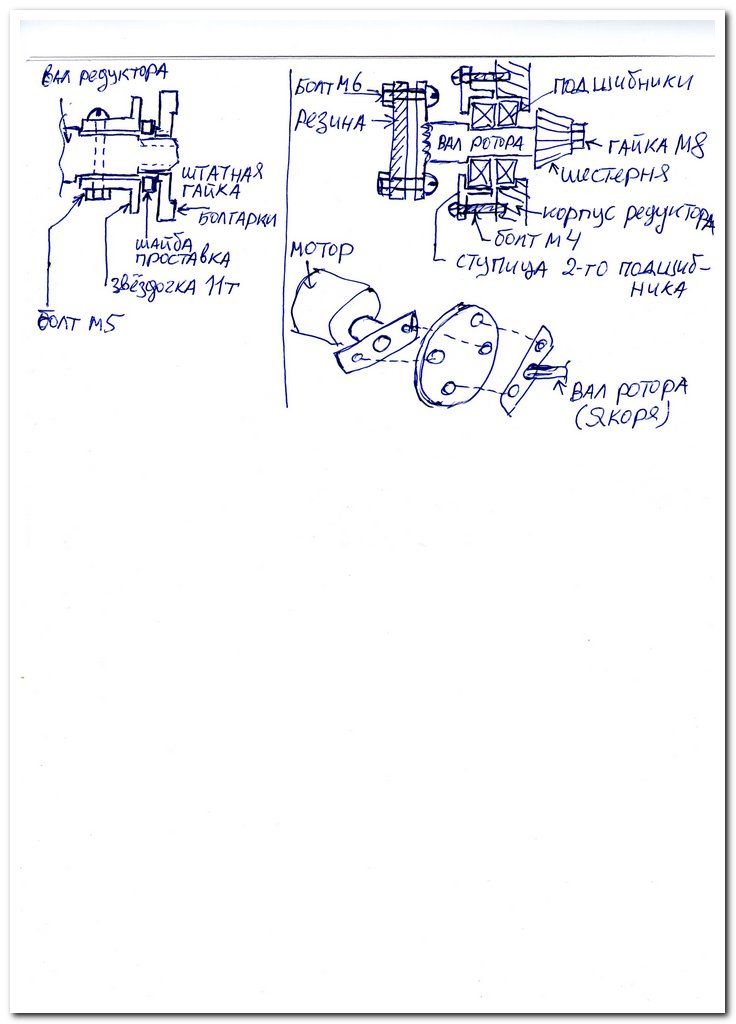 ВАЛ РЕДУКТОРА
ШТАТНАЯ
ГАЙКА
БОЛГАРКИ
ШАЙБА
ПРОСТАВКА
ЗВЁЗДОЧКА 11Т
БОЛТ М5
БОЛТ М6
РЕЗИНА
ПОДШИБНИКИ
ВАЛ РОТОРА
ГАЙКА М8
ШЕСТЕРНЯ
КОРПУС РЕДУКТОРА
БОЛТ М4
СТУПИЦА 2-ГО ПОДШИБ-
НИКА
МОТОР
ВАЛ РОТОРА
(ЯКОРЯ)